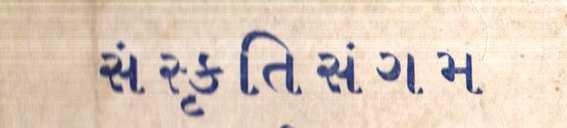 સંસ્કૃતિસંગમ